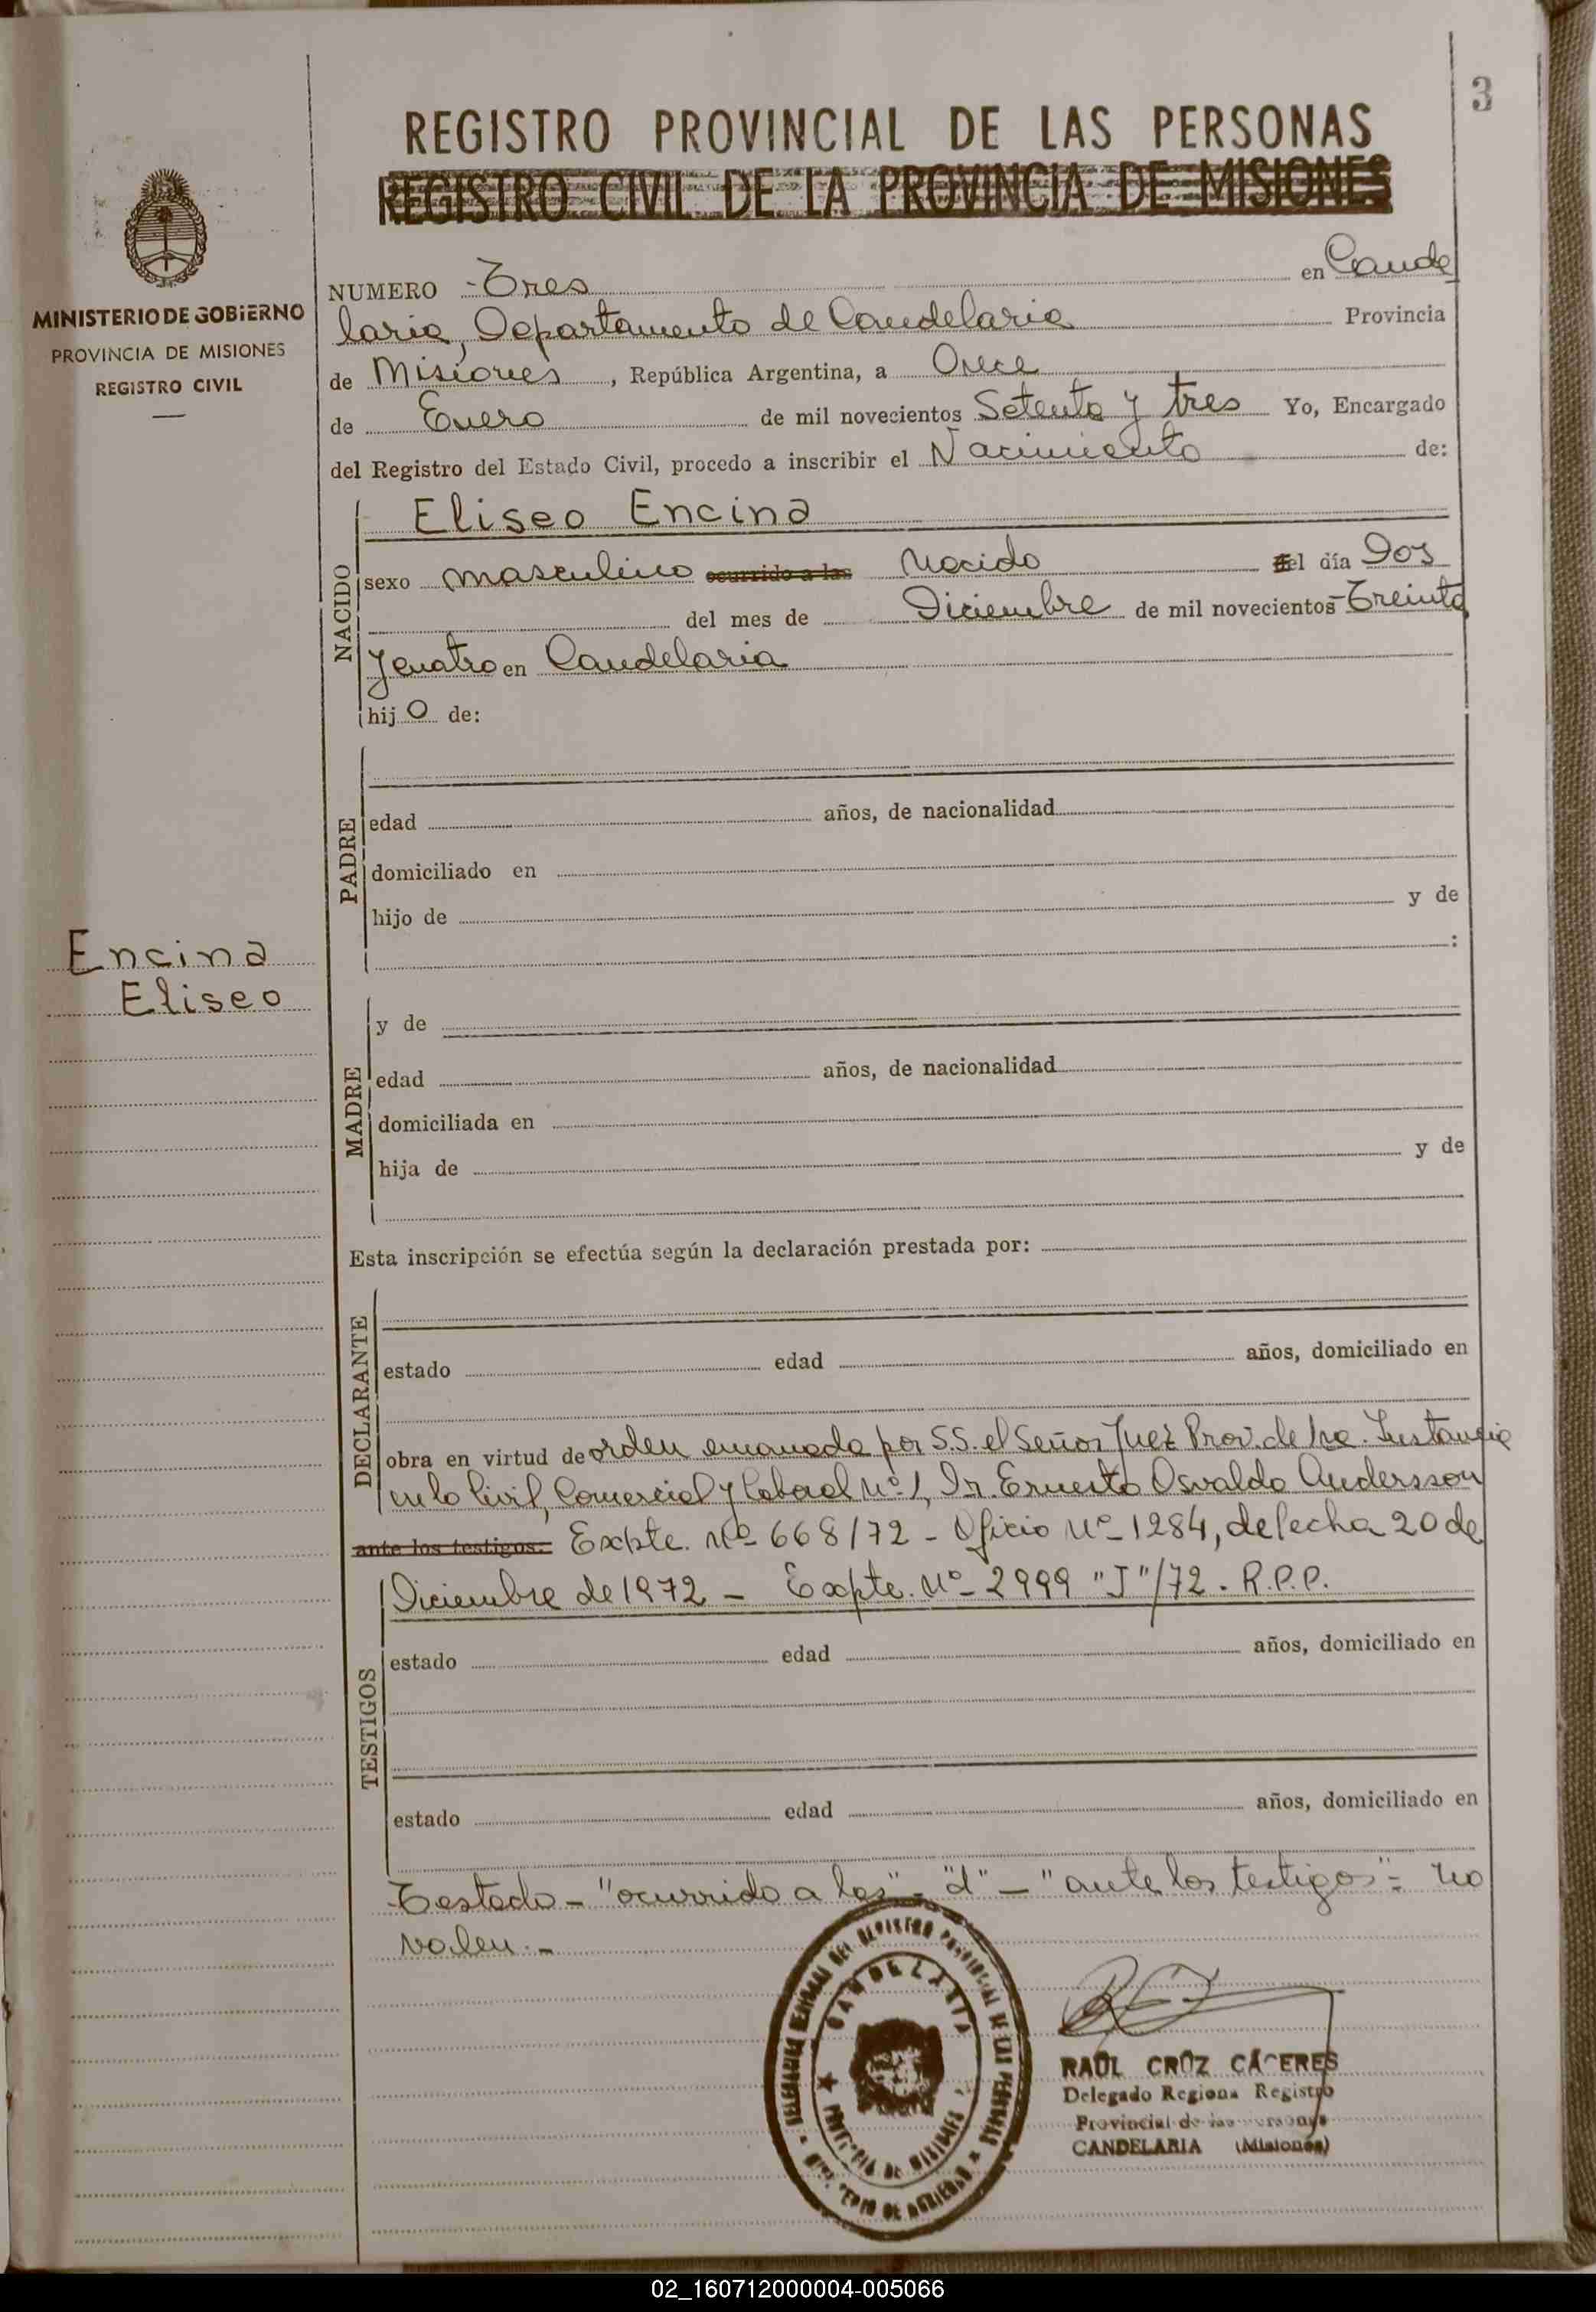 3
REGISTRO PROVINCIAL DE LAS PERSONAS
REGISTRO CIVIL DE LA PROVINCIA DE MISIONES
MINISTERIO DE GOBIERNO
PROVINCIA DE MISIONES
REGISTRO CIVIL
NUMERO -Tres en Cande
laria, Departamento de Candelaria Provincia
de Misiones, República Argentina, a Once
de Enero de mil novecientos Setenta y tres Yo, Encargado
del Registro del Estado Civil, procedo a inscribir el Nacimiento de:
NACIDO
Eliseo Encina
sexo masculino ocurrido a las Nacido el día Dos
del mes de Diciembre de mil novecientos Treinta
y cuatro en Candelaria
hij o de:
PADRE
edad años, de nacionalidad
domiciliado en
hijo de y de
:
Encina
Eliseo
MADRE
y de
edad años, de nacionalidad
domiciliada en
hija de y de
Esta inscripción se efectúa según la declaración prestada por:
DECLARANTE
estado edad años, domiciliado en
obra en virtud de orden emanada por S.S. el Señor Juez Prov. de 1ra. Instancia
en lo Civil, Comercial y Laboral Nº 1, Dr. Ernesto Osvaldo Andersson
ante los testigos: Expte. Nº 668/72 - Oficio Nº 1284, de fecha 20 de
Diciembre de 1972 - Expte. Nº 2999 "J"/72. R.P.P.
TESTIGOS
estado edad años, domiciliado en
estado edad años, domiciliado en
Testado - "ocurrido a las" - "d" - "ante los testigos" = no
valen.-
CANDELARIA
PROVINCIA DE MISIONES
RAÚL CRUZ CÁCERES
Delegado Regional Registro
Provincial de las Personas
CANDELARIA (Misiones)
02_160712000004-005066